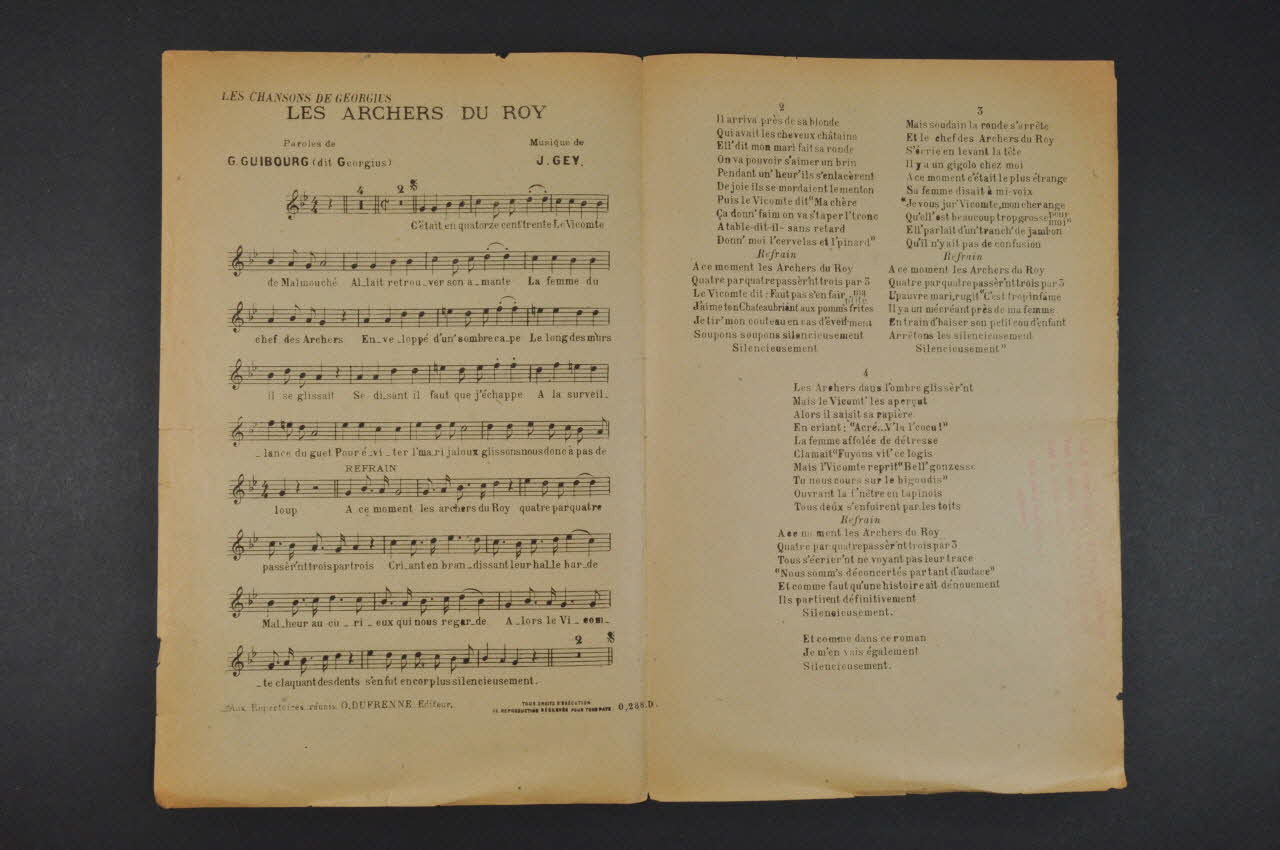 LES CHANSONS DE GEORGIUS
LES ARCHERS DU ROY
Paroles de
G. GUIBOURG (dit Georgius)
Musique de
J. GEY.
C'était en quatorze cent trente Le Vicomte
de Malmouché Al_lait retrou_ver son a_mante La femme du
chef des Archers En_ve_loppé d'un' sombre ca_pe Le long des murs
il se glissait Se di_sant il faut que j'échappe A la surveil_
_lance du guet Pour é_vi_ter l'ma_ri jaloux glissons nous donc à pas de
REFRAIN
loup A ce moment les archers du Roy quatre par quatre
passèr'nt trois par trois Cri_ant en bran_dissant leur hal_le bar_de
Mal_heur au cu_ri_eux qui nous regar_de A_lors le Vi_com_
_te claquant des dents s'en fut encor plus silencieusement.
Aux Répertoires réunis O. DUFRENNE Editeur.
TOUS DROITS D'EXÉCUTION
DE REPRODUCTION RÉSERVÉS POUR TOUS PAYS
O,288.D.
2
Il arriva près de sa blonde
Qui avait les cheveux châtains
Ell' dit mon mari fait sa ronde
On va pouvoir s'aimer un brin
Pendant un' heur' ils s'enlacèrent
De joie ils se mordaient le menton
Puis le Vicomte dit "Ma chère
Ça donn' faim on va s'taper l'tronc
A table-dit-il- sans retard
Donn' moi l'cervelas et l'pinard"
Refrain
A ce moment les Archers du Roy
Quatre par quatre passèr'nt trois par 3
Le Vicomte dit: Faut pas s'en fair, ma
petite
J'aime ton Chateaubriant aux pomm's frites
Je tir' mon couteau en cas d'évèn'ment
Soupons soupons silencieusement
Silencieusement
3
Mais soudain la ronde s'arrête
Et le chef des Archers du Roy
S'écrie en levant la tête
Il y a un gigolo chez moi
A ce moment c'était le plus étrange
Sa femme disait à mi-voix
"Je vous jur' Vicomte, mon cher ange
Qu'ell' est beaucoup trop grosse pour
moi"
Ell' parlait d'un' tranch' de jambon
Qu'il n'y ait pas de confusion
Refrain
A ce moment les Archers du Roy
Quatre par quatre passèr'nt trois par 3
L'pauvre mari, rugit "C'est trop infâme
Il y a un mécréant près de ma femme
En train d'baiser son petit cou d'enfant
Arrêtons les silencieusement
Silencieusement"
4
Les Archers dans l'ombre glissèr'nt
Mais le Vicomt' les aperçut
Alors il saisit sa rapière
En criant: "Acré...V'la l'cocu!"
La femme affolée de détresse
Clamait "Fuyons vit' ce logis
Mais l'Vicomte reprit "Bell' gonzesse
Tu nous cours sur le bigoudis"
Ouvrant la f'nêtre en tapinois
Tous deux s'enfuirent par les toits
Refrain
A ce moment les Archers du Roy
Quatre par quatre passèr'nt trois par 3
Tous s'écrièr'nt ne voyant pas leur trace
"Nous somm's déconcertés par tant d'audace"
Et comme faut qu'une histoire ait dénouement
Ils partirent définitivement
Silencieusement.
Et comme dans ce roman
Je m'en vais également
Silencieusement.